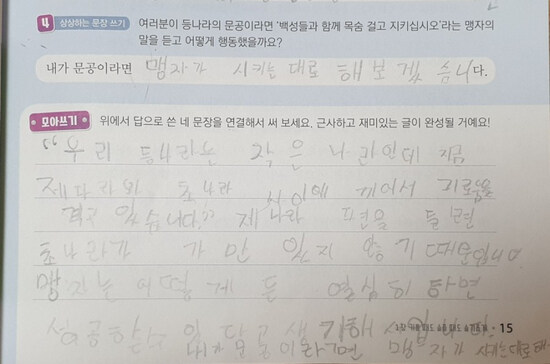 4 상상하는 문장 쓰기 여러분이 등나라의 문공이라면 '백성들과 함께 목숨 걸고 지키십시오'라는 맹자의
말을 듣고 어떻게 행동했을까요?
내가 문공이라면 맹자가 시키는 대로 해보겠습니다.
모아쓰기 위에서 답으로 쓴 네 문장을 연결해서 써 보세요. 근사하고 재미있는 글이 완성될 거예요!
"우리 등나라는 작은 나라인데 지금
제나라와 초나라 사이에 끼어서 괴로움을
겪고 있습니다." 제나라 편을 들면
초나라가 가만 있지 않기 때문입니다.
맹자는 어떻게든 열심히 하면
성공할 수 있다고 생각해
내가 문공이라면 맹자가 시키는대로 해
15